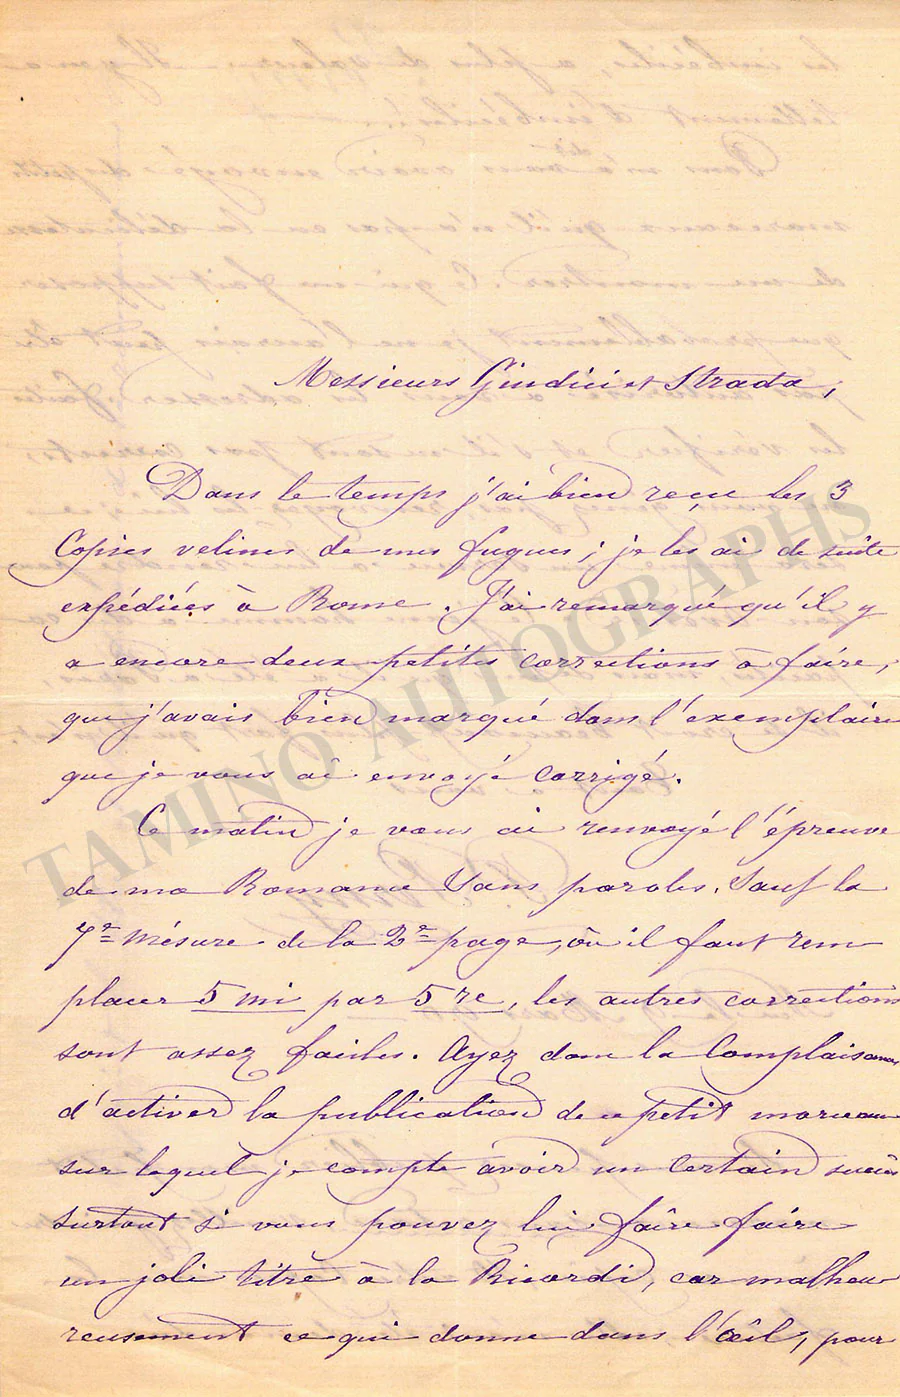 Messieurs Giudici et Strada,
Dans le temps j'ai bien reçu les 3
Copies velines de mes fugues; je les ai de suite
expédiées à Rome. J'ai remarqué qu'il y
a encore deux petites corrections à faire,
que j'avais bien marqué dans l'exemplaire
que je vous ai envoyé corrigé.
Ce matin je vous ai renvoyé l'épreuve
de ma Romance Sans paroles. Sauf la
7e mésure de la 2e page, où il faut rem
placer 5 mi par 5 re, les autres corrections
sont assez faciles. Ayez donc la Complaisance
d'activer la publication de ce petit morceau
sur lequel je compte avoir un certain succès
surtout si vous pouvez lui faire faire
un joli titre à la Ricordi, car malheu
reusement ce qui donne dans l'œil, pour
TAMINO AUTOGRAPHS